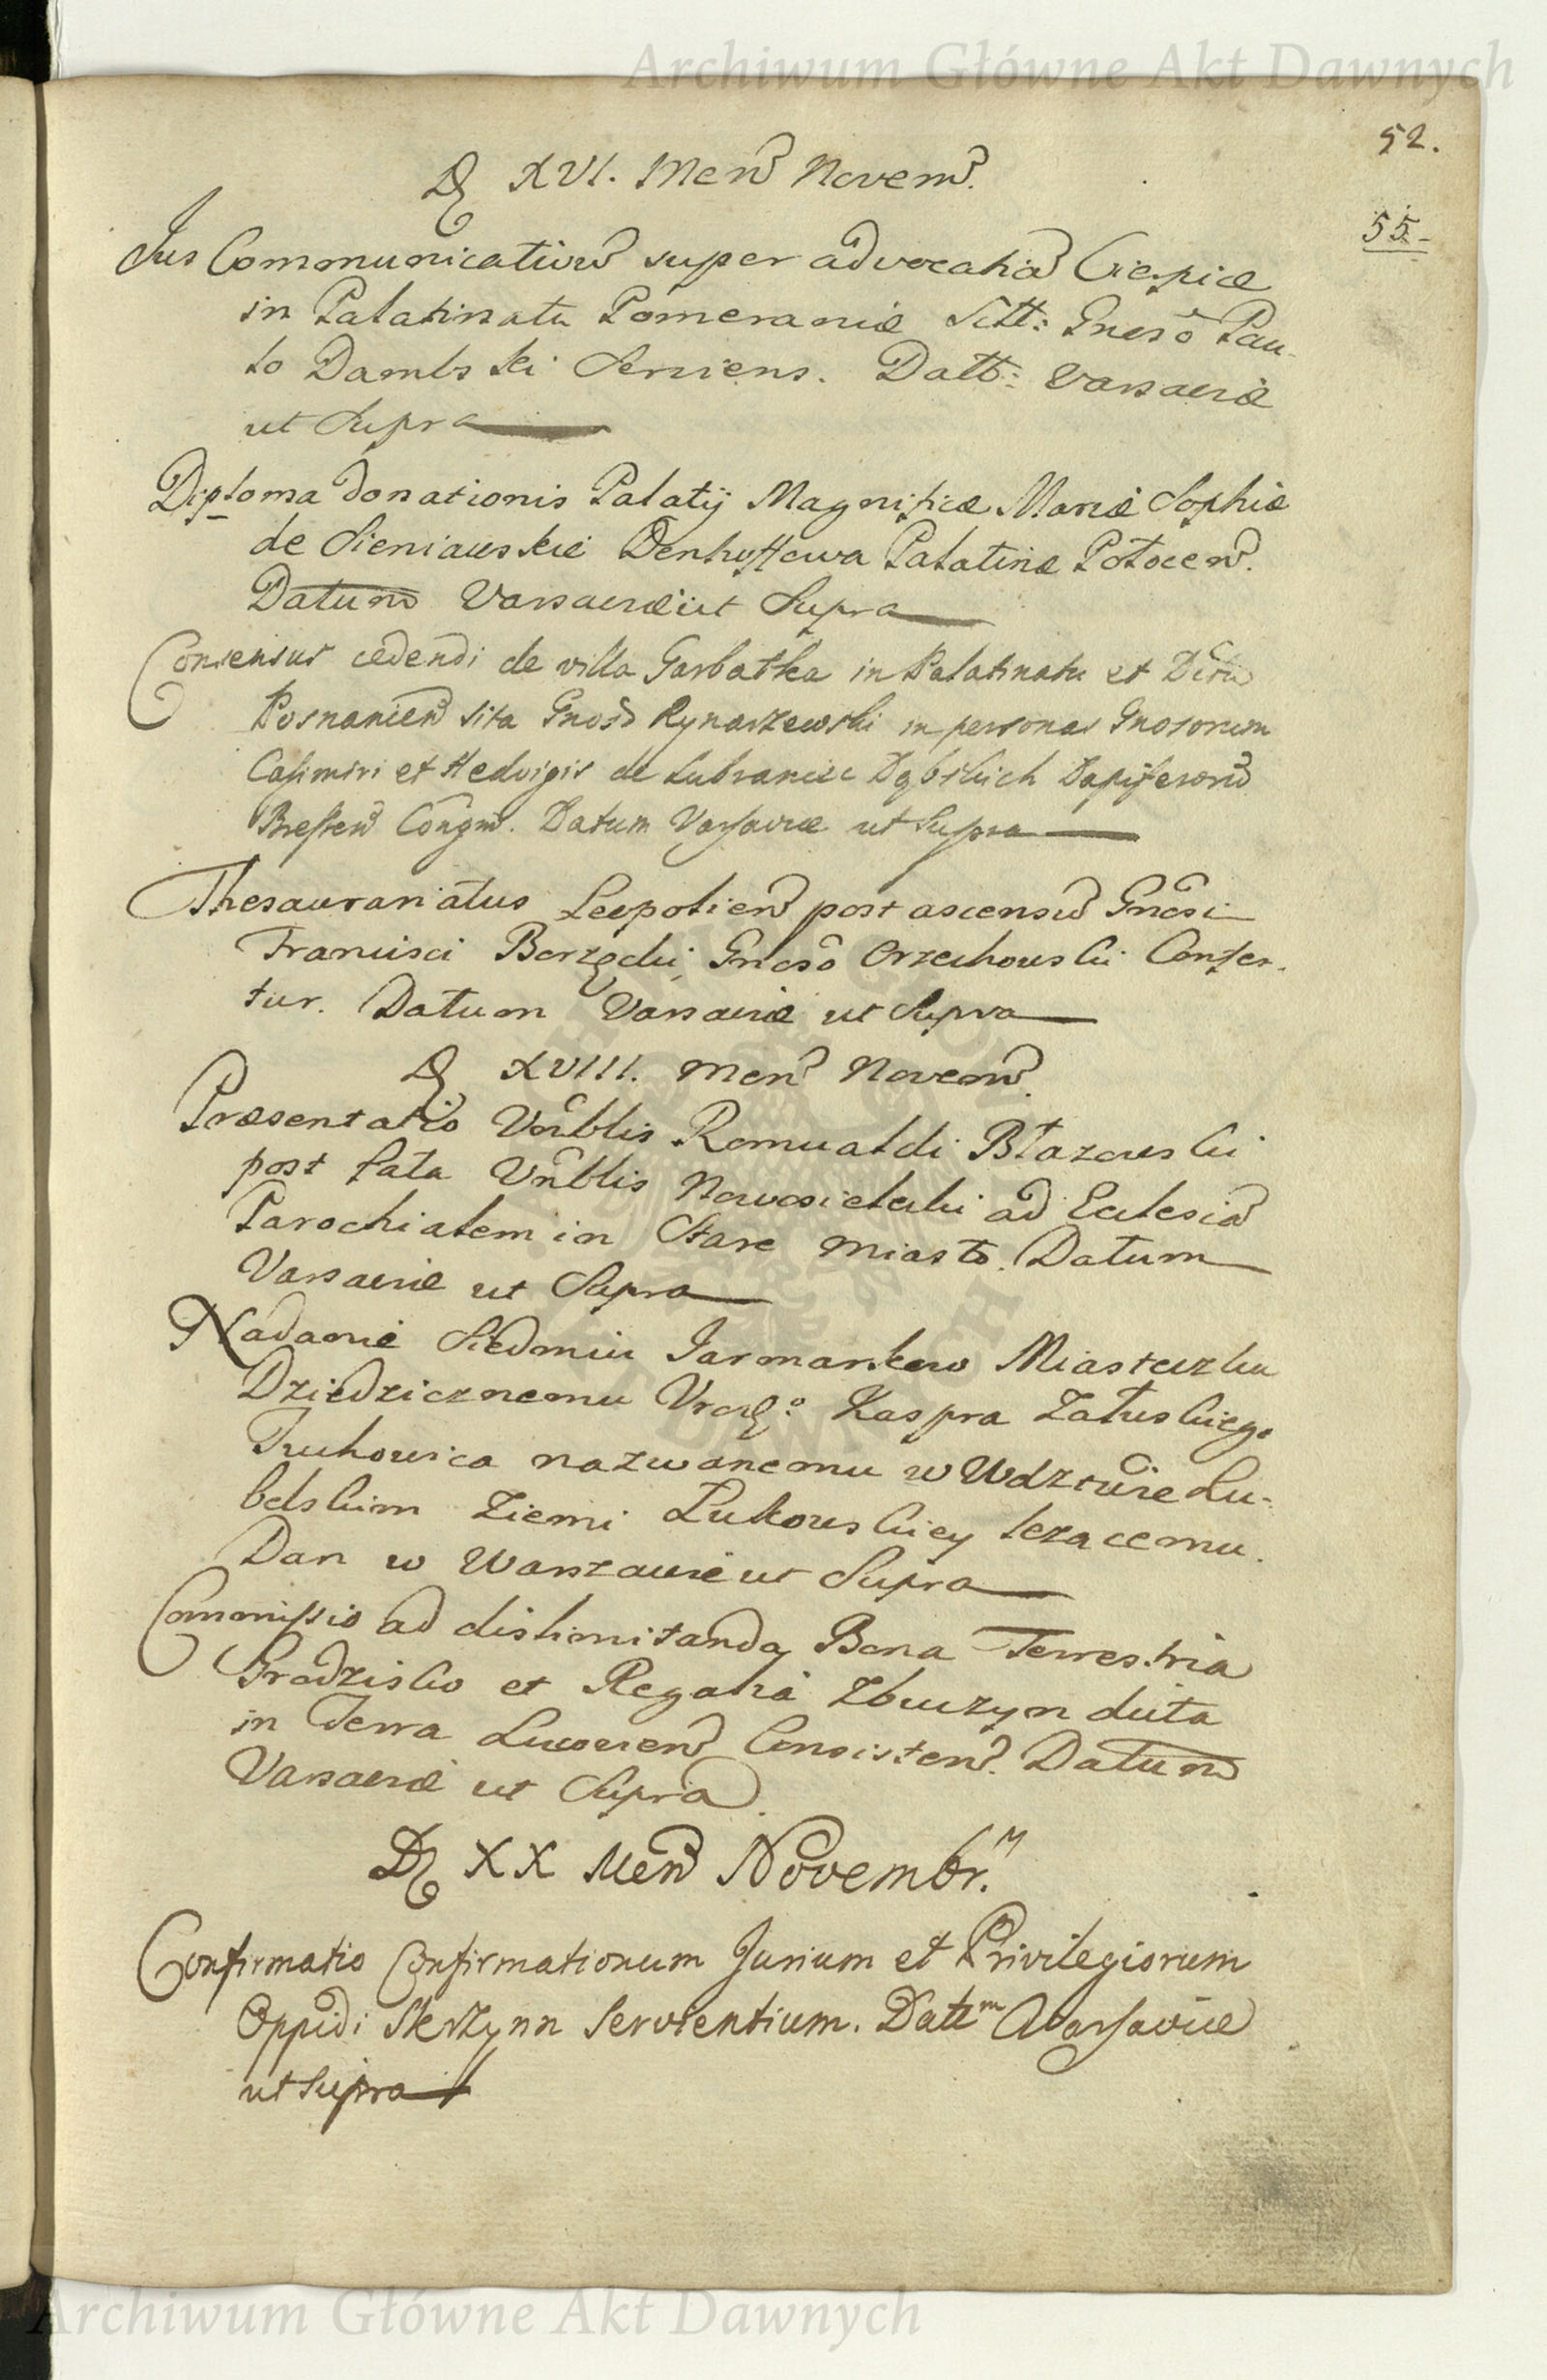 Archiwum Główne Akt Dawnych
52.
55.
D XVI. Mens Novem.
Jus Communicativũ super advocatiã Ciepiæ
in Palatinatu Pomeraniæ Sitt: Gneso Pau-
lo Dambski Serviens. Datt: Varsaviæ
ut Supra
Diploma donationis Palatij Magnificæ Mariæ Sophiæ
de Sieniawskie Denhoffowa Palatinæ Polocen.
Datum Varsaviæ ut Supra
Consensus cedendi de villa Garbatka in Palatinatu et Dctu
Posnanien sita Gnoso Rynarzewski in personas Gnosorum
Casimiri et Hedvigis de Lubraniec Dąbskich Dapiferorũ
Bresten Cong. Datum Varsaviæ ut Supra
Thesaurariatus Leopolien post ascensũ Gnosi
Francisci Borzęcki, Gnoso Orzechowski Confer-
tur. Datum Varsaviæ ut Supra
D XVIII. Men Novem.
Præsentatio Vnblis Romualdi Błazowski
post fata Vnblis Nowosielecki ad Eclesiã
Parochialem in Stare Miasto. Datum
Varsaviæ ut Supra
Nadanie Siedmiu Jarmarkow Miasteczku
Dziedzicznemu Urodgo: Kaspra Załuskiego
Tuchowica nazwanemu w Wdztwie Lu-
belskim Ziemi Łukowskiey lezacemu.
Dan w Warszawie ut Supra
Commissio ad dislimitanda Bona Terrestria
Gradzisko et Regalia Zbuczyn dicta
in Terra Lucovien Consisten. Datum
Varsaviæ ut Supra.
D XX Men Novembr.
Confirmatio Confirmationum Jurium et Privilegiorum
Oppidi Skrzynn Servientium. Dattm Varsaviæ
ut Supra
Archiwum Główne Akt Dawnych